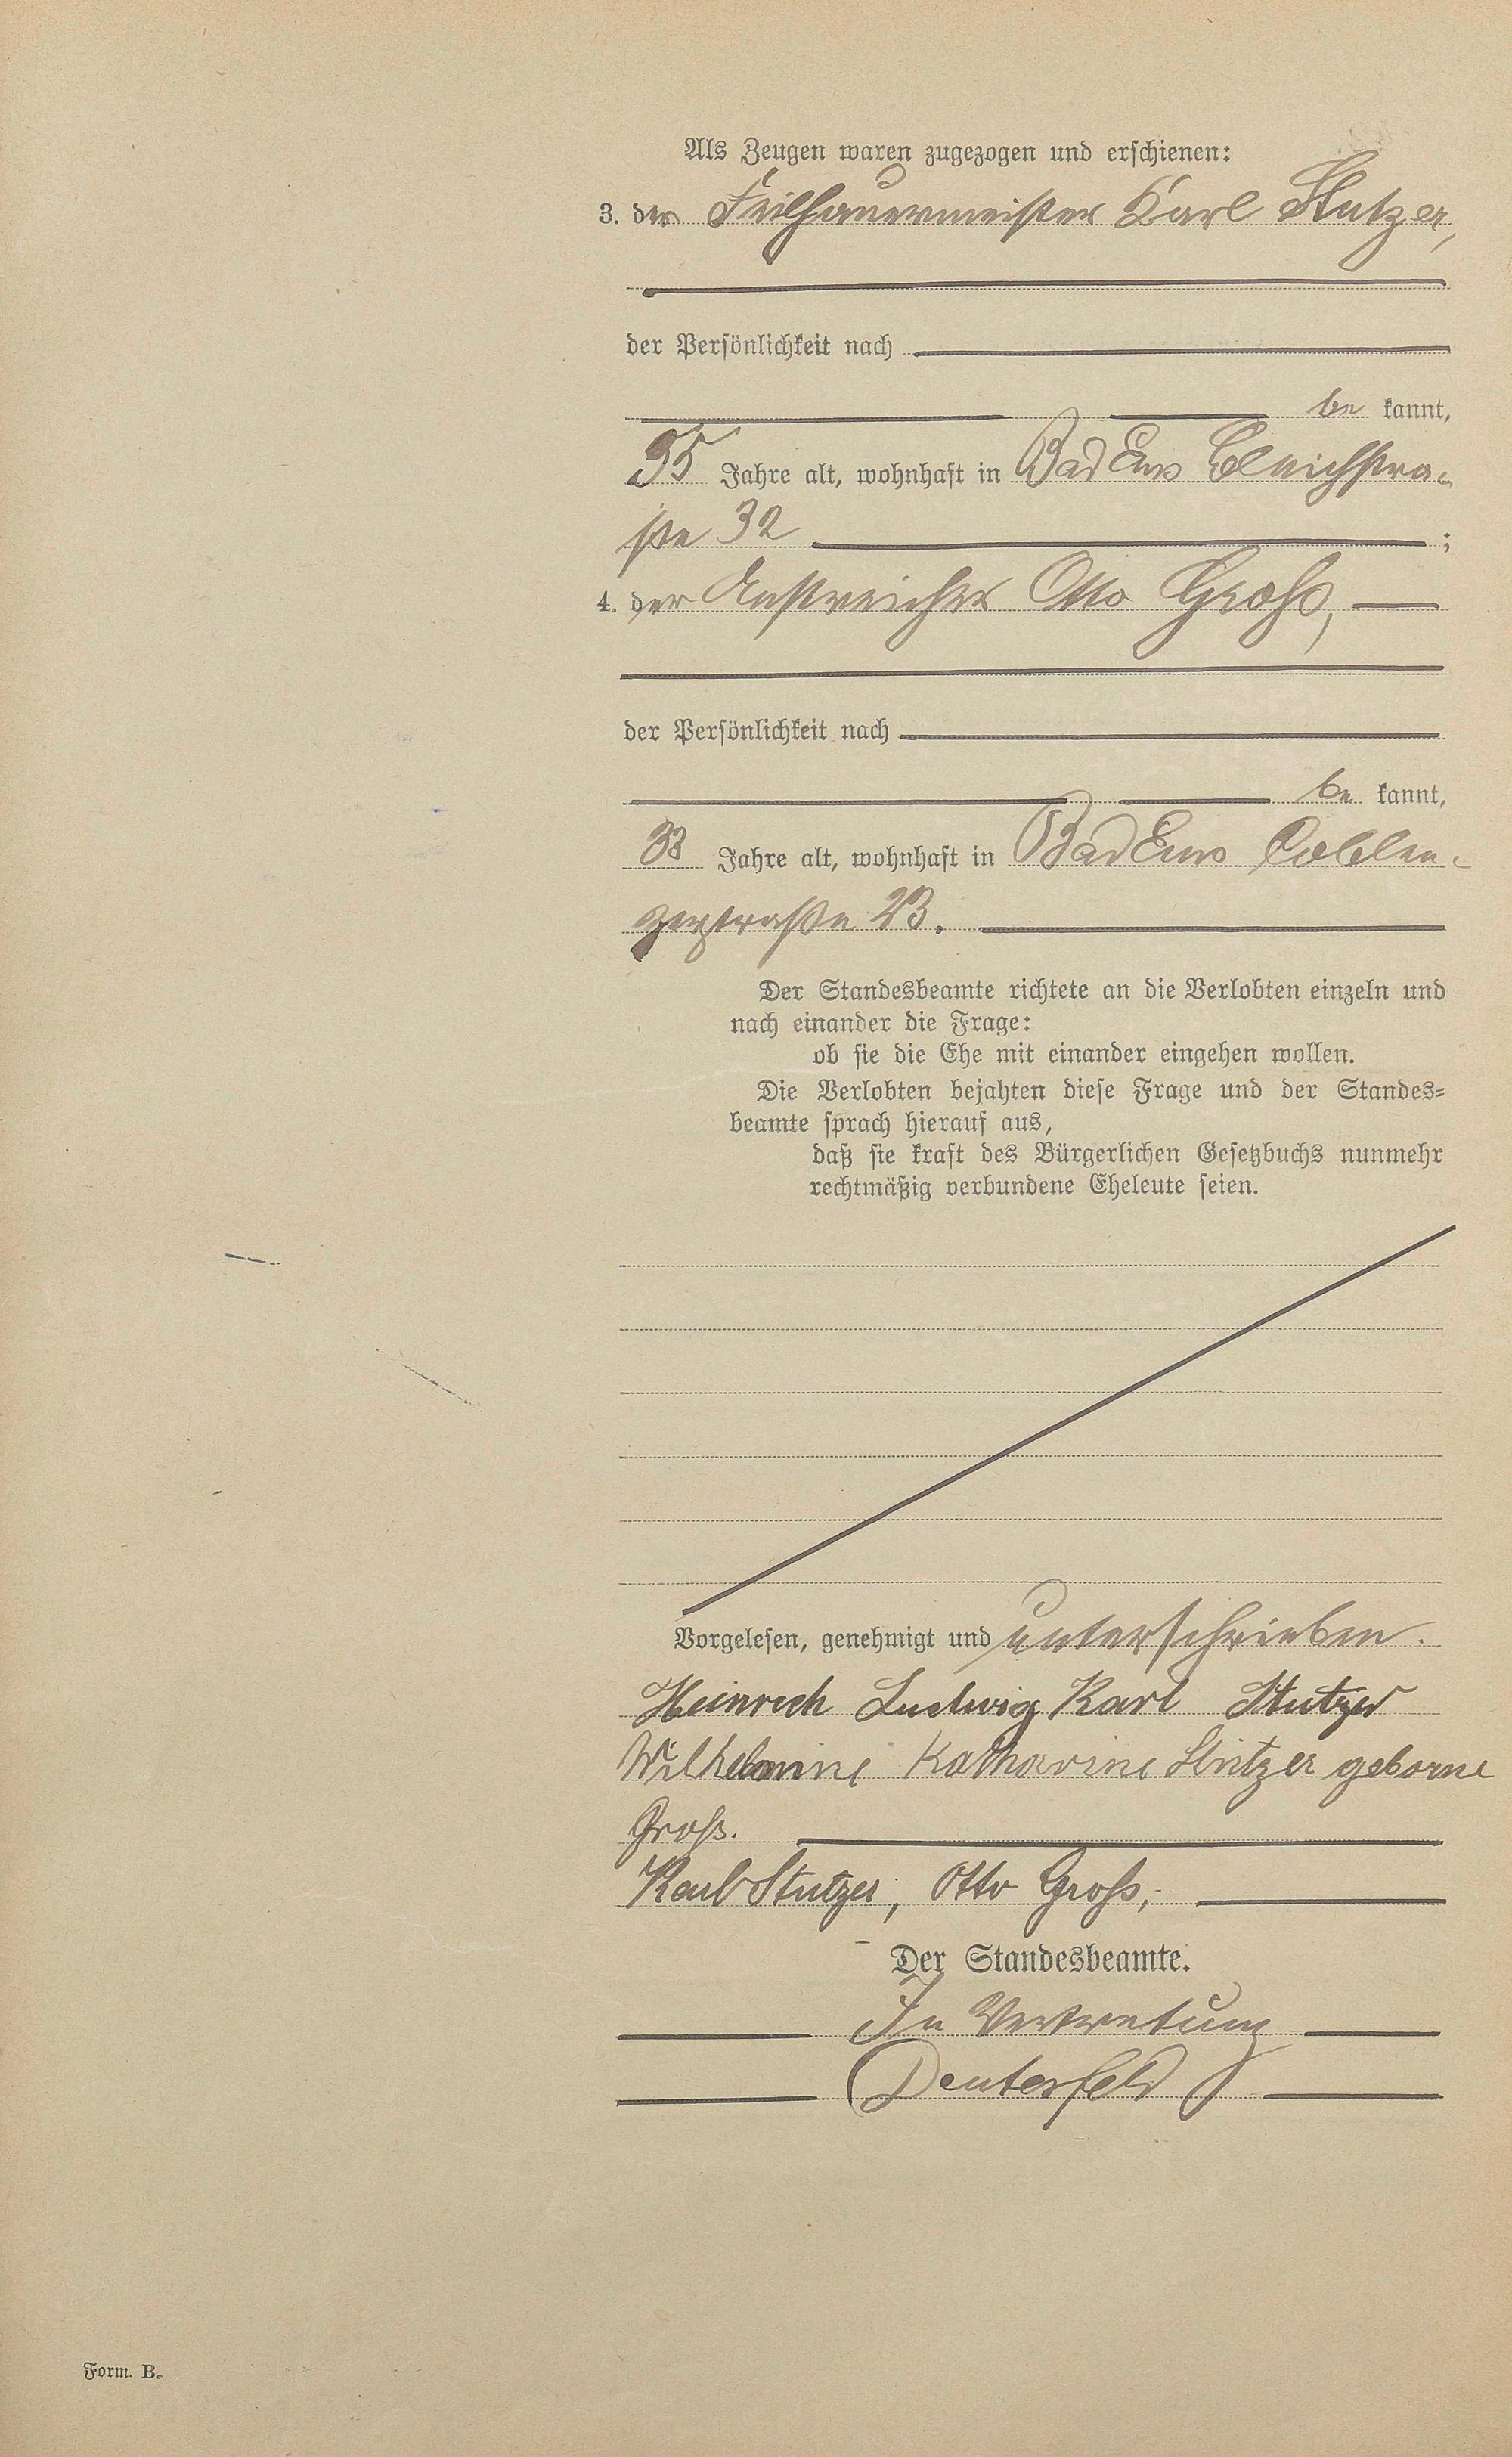 Als Zeugen waren zugezogen und erschienen:
3. der Feilhauermeister Karl Stutzer,
der Persönlichkeit nach
be kannt,
55 Jahre alt, wohnhaft in Bad Ems Bleichstra-
ße 32 ;
4. der Anstreicher Otto Groß,
der Persönlichkeit nach
be kannt,
33 Jahre alt, wohnhaft in Bad Ems Coblen-
zerstraße 23.
Der Standesbeamte richtete an die Verlobten einzeln und
nach einander die Frage:
ob sie die Ehe mit einander eingehen wollen.
Die Verlobten bejahten diese Frage und der Standes-
beamte sprach hierauf aus,
daß sie kraft des Bürgerlichen Gesetzbuchs nunmehr
rechtmäßig verbundene Eheleute seien.
Vorgelesen, genehmigt und unterschrieben.
Heinrich Ludwig Karl Stutzer
Wilhelmine Katharine Stutzer geborne
Groß.
Karl Stutzer, Otto Groß,
Der Standesbeamte.
In Vertretung
Deuterfeld
Form. B.